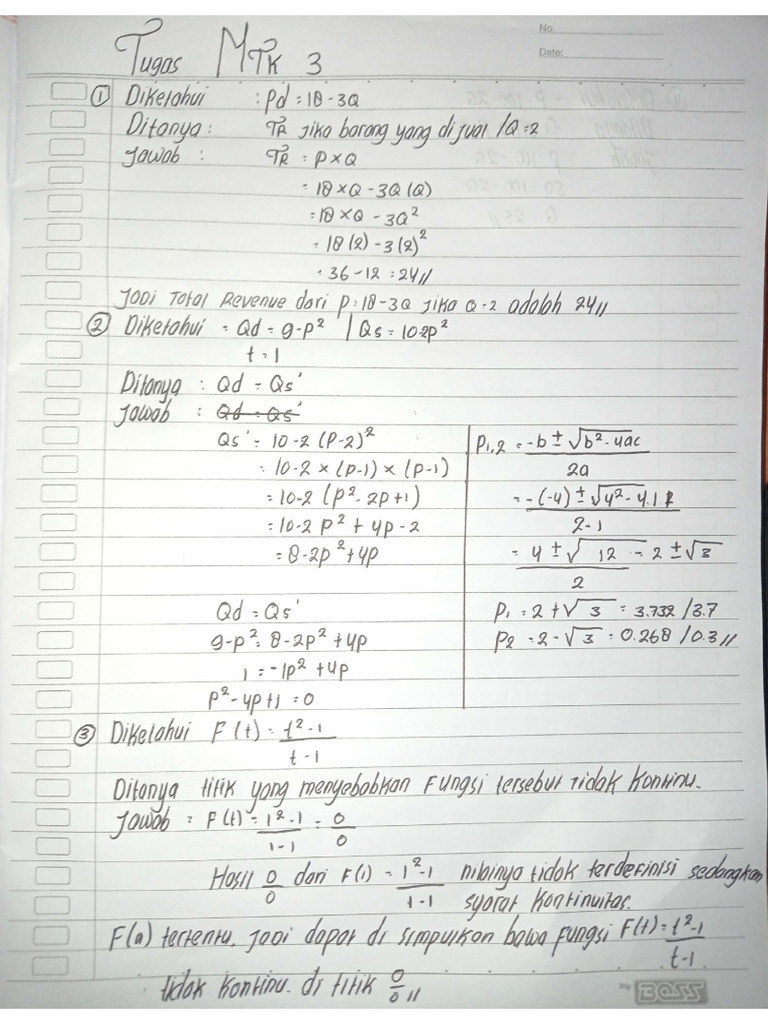 No.
Date:
Tugas MTK 3
① Diketahui : Pd = 18 - 3Q
Ditanya : TR jika barang yang di jual /Q=2
Jawab : TR = P × Q
= 18 × Q - 3Q (Q)
= 18 × Q - 3Q²
= 18 (2) - 3 (2)²
= 36 - 12 = 24 //
Jadi Total Revenue dari P = 18 - 3Q jika Q = 2 adalah 24 //
② Diketahui = Qd = 9 - P² / Qs = 10-2P²
t = 1
Ditanya : Qd = Qs'
Jawab : Qd = Qs'
Qs' = 10 - 2 (P-2)²
= 10 - 2 × (P-1) × (P-1)
= 10-2 (P² - 2P + 1)
= 10-2 P² + 4P - 2
= 8 - 2P² + 4P
Qd = Qs'
9-P² = 8 - 2P² + 4P
1 = -1P² + 4P
P² - 4P + 1 = 0
P1,2 = -b ± √b² - 4ac
2a
= -(-4) ± √4² - 4.1
2-1
= 4 ± √12 = 2 ± √3
2
P1 = 2 + √3 = 3.732 / 3.7
P2 = 2 - √3 = 0.268 / 0.3 //
③ Diketahui F (t) = t² - 1
t - 1
Ditanya titik yang menyebabkan Fungsi tersebut Tidak Kontinu.
Jawab = F(t) = 1² - 1 = 0
1 - 1 0
Hasil 0 dari F(1) = 1² - 1 nilainya tidak terdefinisi sedangkan
0 1 - 1 syarat Kontinuitas.
F(a) tertentu. Jadi dapat di simpulkan bawa fungsi F(t) = t² - 1
t - 1
tidak Kontinu di titik 0
0 //
By BOSS